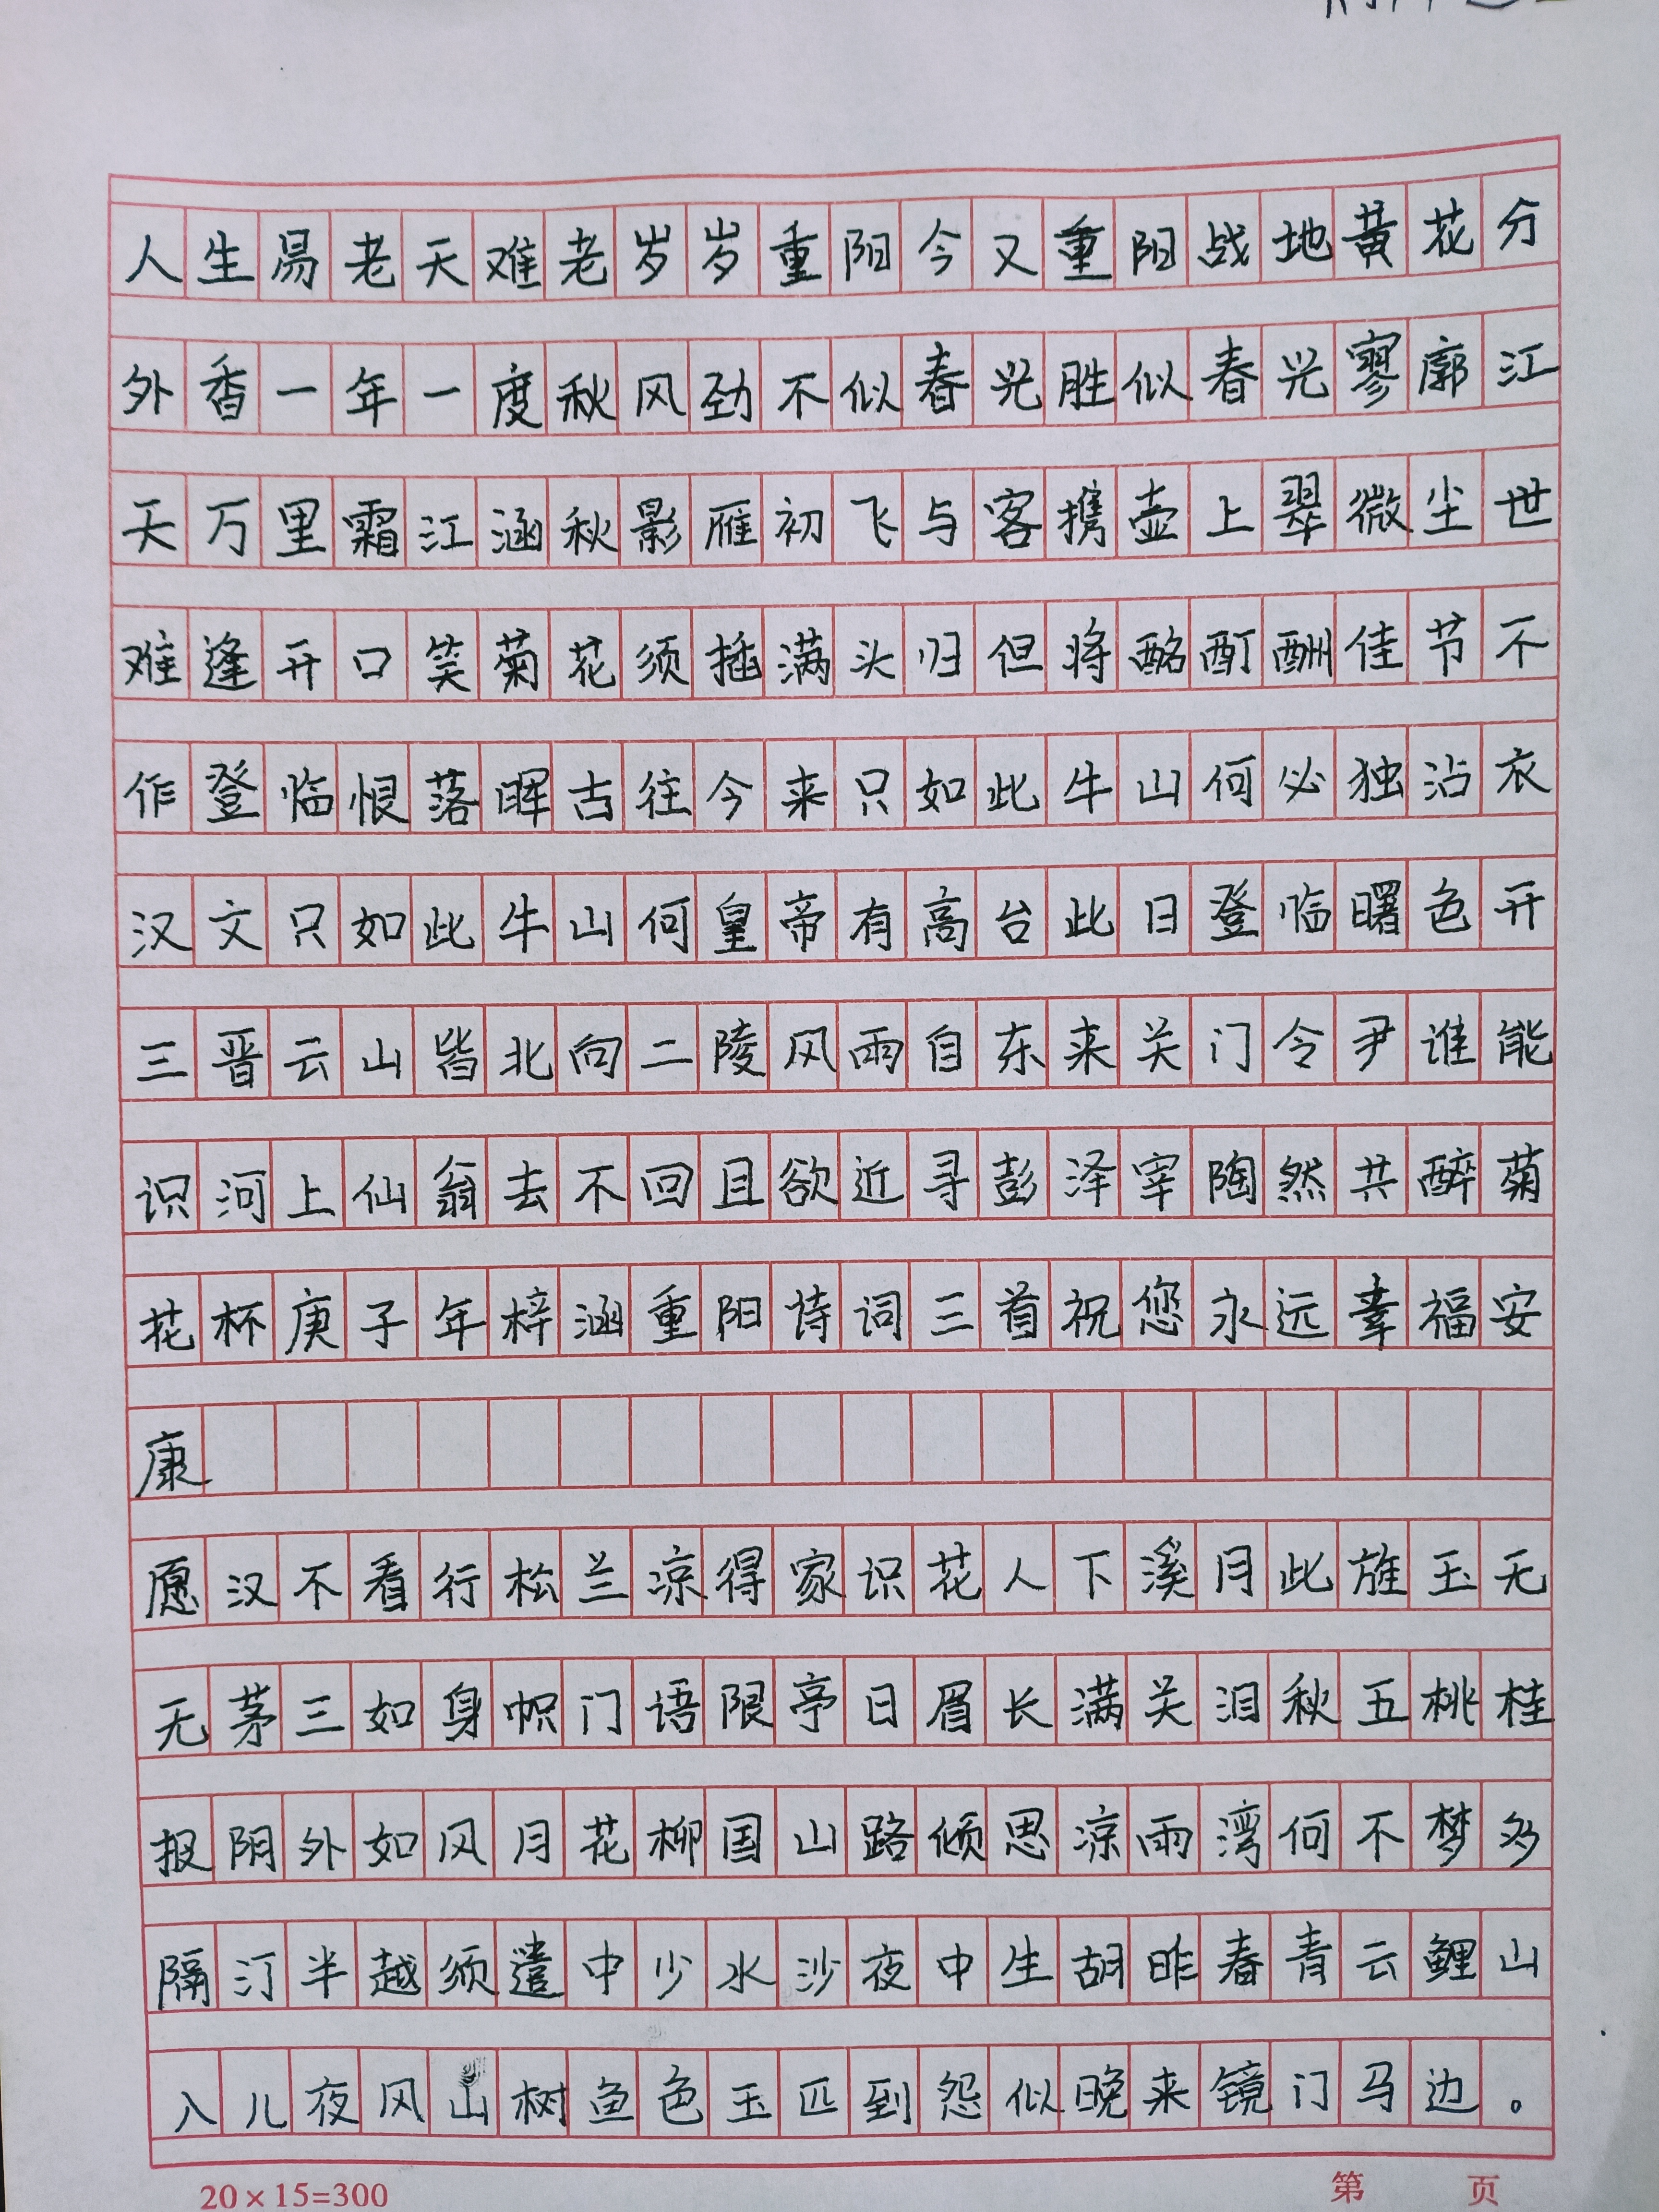 人生易老天难老岁岁重阳今又重阳战地黄花分
外香一年一度秋风劲不似春光胜似春光寥廓江
天万里霜江涵秋影雁初飞与客携壶上翠微尘世
难逢开口笑菊花须插满头归但将酩酊酬佳节不
作登临恨落晖古往今来只如此牛山何必独沾衣
汉文只如此牛山何皇帝有高台此日登临曙色开
三晋云山皆北向二陵风雨自东来关门令尹谁能
识河上仙翁去不回且欲近寻彭泽宰陶然共醉菊
花杯庚子年梓涵重阳诗词三首祝您永远幸福安
康
愿汉不看行松兰凉得家识花人下溪月此旌玉无
无茅三如身帜门语限亭日眉长满关泪秋五桃桂
报阴外如风月花柳国山路倾思凉雨湾何不梦多
隔汀半越须遣中少水沙夜中生胡昨春青云鲤山
入儿夜风山树鱼色玉匹到怨似晚来镜门马边。
20×15=300
第 页